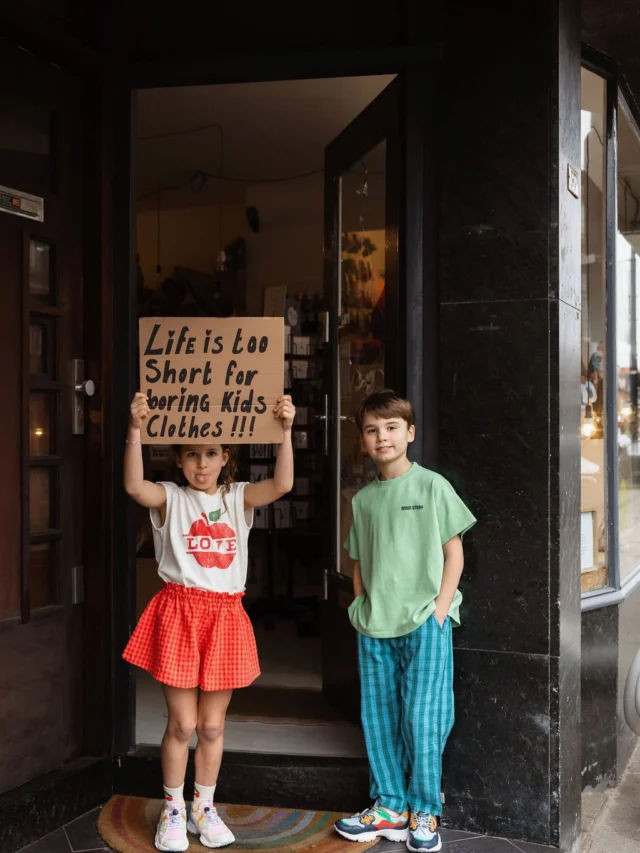 Life is too
Short for
boring Kids
Clothes !!!
LOVE